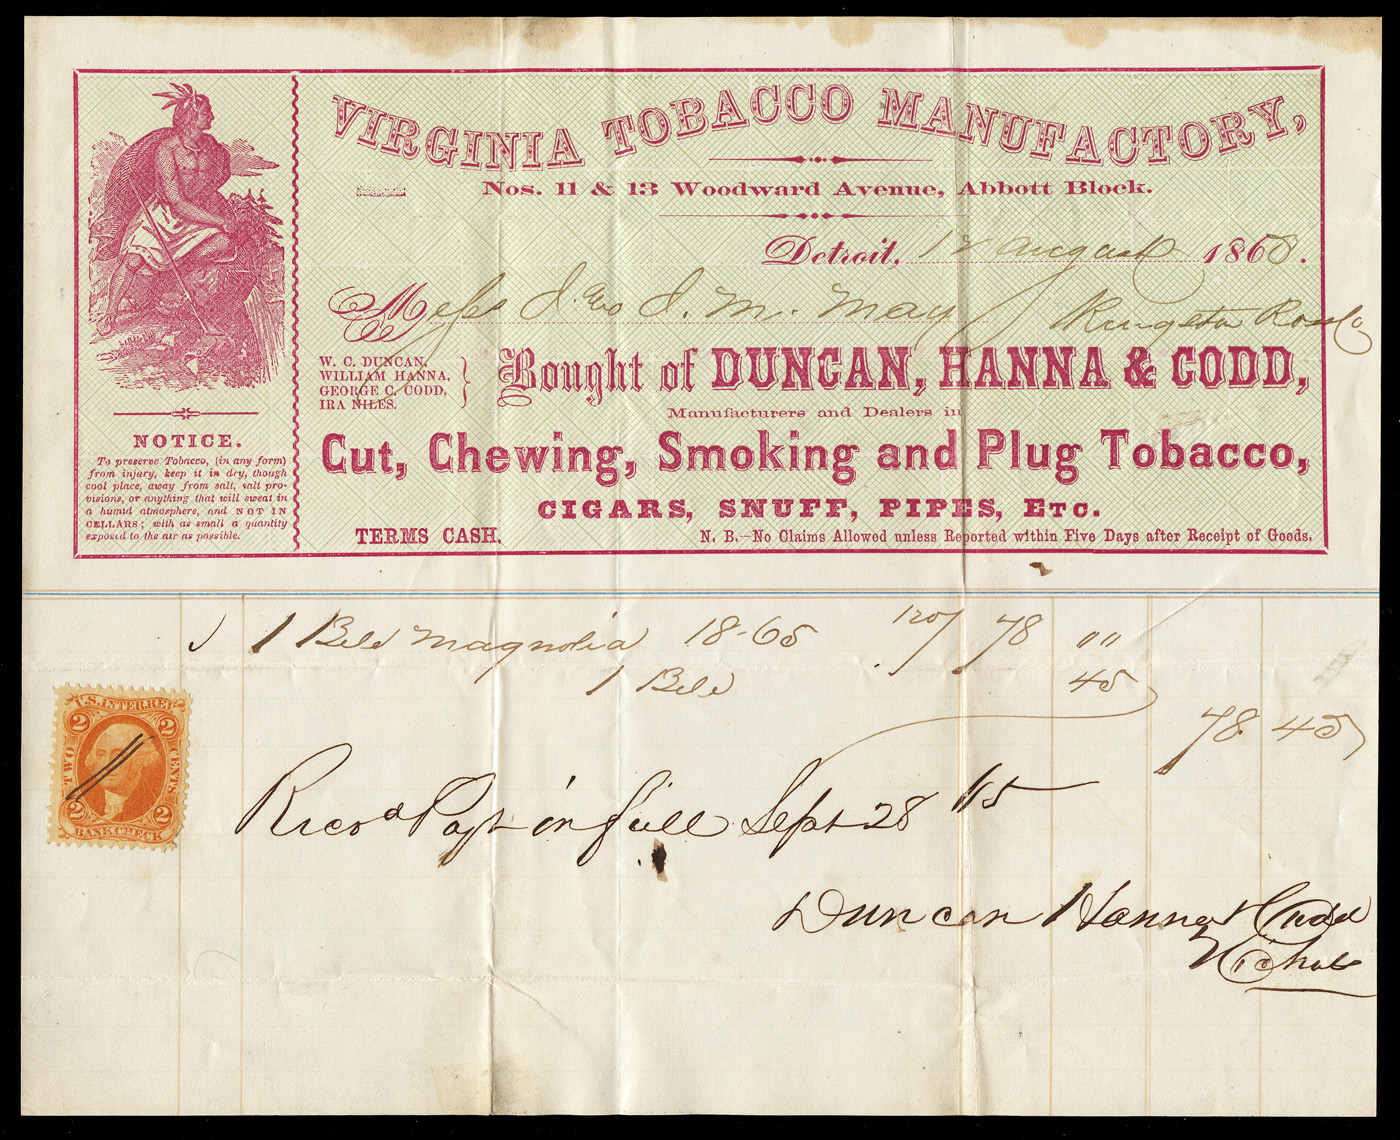 VIRGINIA TOBACCO MANUFACTORY,
Nos. 11 & 13 Woodward Avenue, Abbott Block.
Detroit, 12 August 1865.
Mess J. Geo J. M. May
W. C. DUNCAN,
WILLIAM HANNA,
GEORGE C. CODD,
IRA NILES.
Bought of DUNCAN, HANNA & CODD,
Manufacturers and Dealers in
Cut, Chewing, Smoking and Plug Tobacco,
CIGARS, SNUFF, PIPES, ETC.
TERMS CASH.
N. B.—No Claims Allowed unless Reported within Five Days after Receipt of Goods.
NOTICE.
To preserve Tobacco, (in any form)
from injury, keep it in dry, though
cool place, away from salt, salt pro-
visions, or anything that will sweat in
a humid atmosphere, and NOT IN
CELLARS; with as small a quantity
exposed to the air as possible.
1 Magnolia 18-65 120/ 78 "
1 45
78 45
U.S. INTER. REV.
2 2
TWO CENTS
2 2
BANK CHECK
Recd Payt in full Sept 28 65
Duncan Hanna & Codd